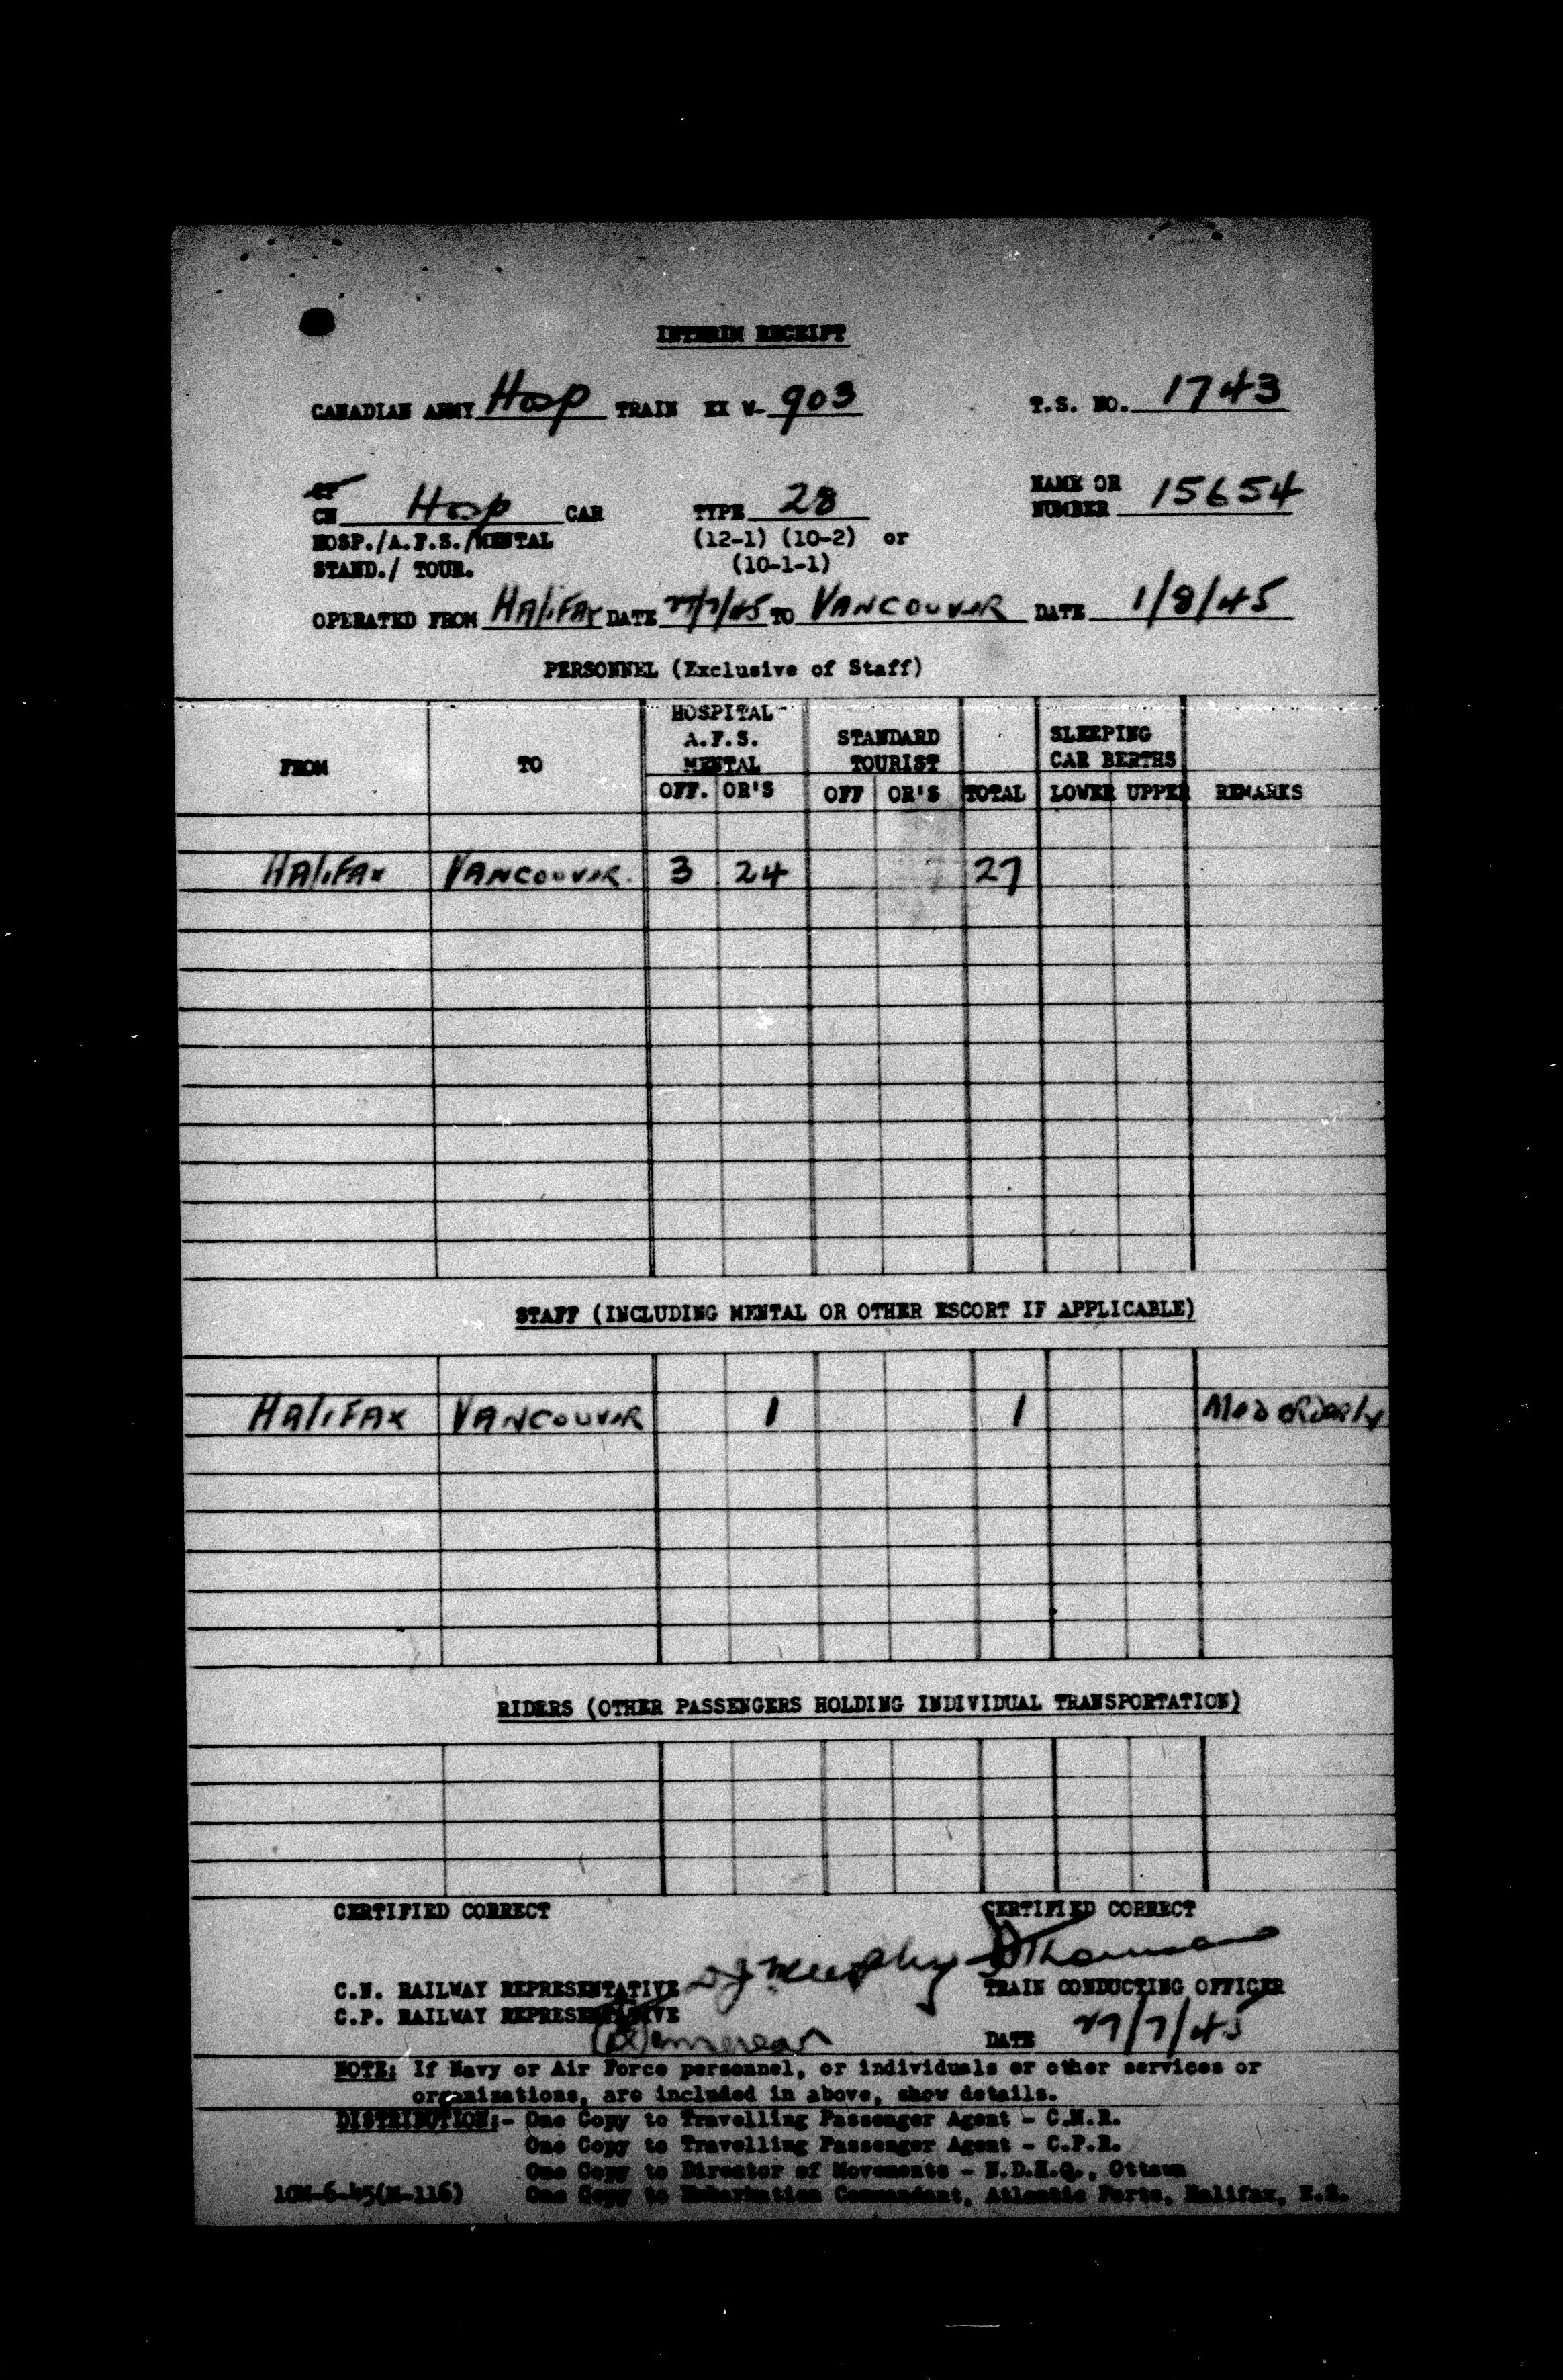 INTERIM RECEIPT
CANADIAN ARMY Hosp TRAIN EX W- 903 T.S. NO. 1743
CP
CN Hosp CAR TYPE 28 NAME OR NUMBER 15654
HOSP./A.F.S./MENTAL (12-1) (10-2) or
STAND./ TOUR. (10-1-1)
OPERATED FROM HALIFAX DATE 27/7/45 TO VANCOUVER DATE 1/8/45
PERSONNEL (Exclusive of Staff)
FROM TO HOSPITAL A.F.S. MENTAL STANDARD TOURIST SLEEPING CAR BERTHS
OFF. OR'S OFF OR'S TOTAL LOWER UPPER REMARKS
HALIFAX VANCOUVER. 3 24 27
STAFF (INCLUDING MENTAL OR OTHER ESCORT IF APPLICABLE)
HALIFAX VANCOUVER 1 1 MED ORDERLY
RIDERS (OTHER PASSENGERS HOLDING INDIVIDUAL TRANSPORTATION)
CERTIFIED CORRECT CERTIFIED CORRECT
C.N. RAILWAY REPRESENTATIVE D J Murphy TRAIN CONDUCTING OFFICER
C.P. RAILWAY REPRESENTATIVE
DATE 27/7/45
NOTE: If Navy or Air Force personnel, or individuals or other services or
organizations, are included in above, show details.
DISTRIBUTION:- One Copy to Travelling Passenger Agent - C.N.R.
One Copy to Travelling Passenger Agent - C.P.R.
One Copy to Director of Movements - N.D.H.Q., Ottawa
10M-6-45(M-116) One Copy to Embarkation Commandant, Atlantic Ports, Halifax, N.S.